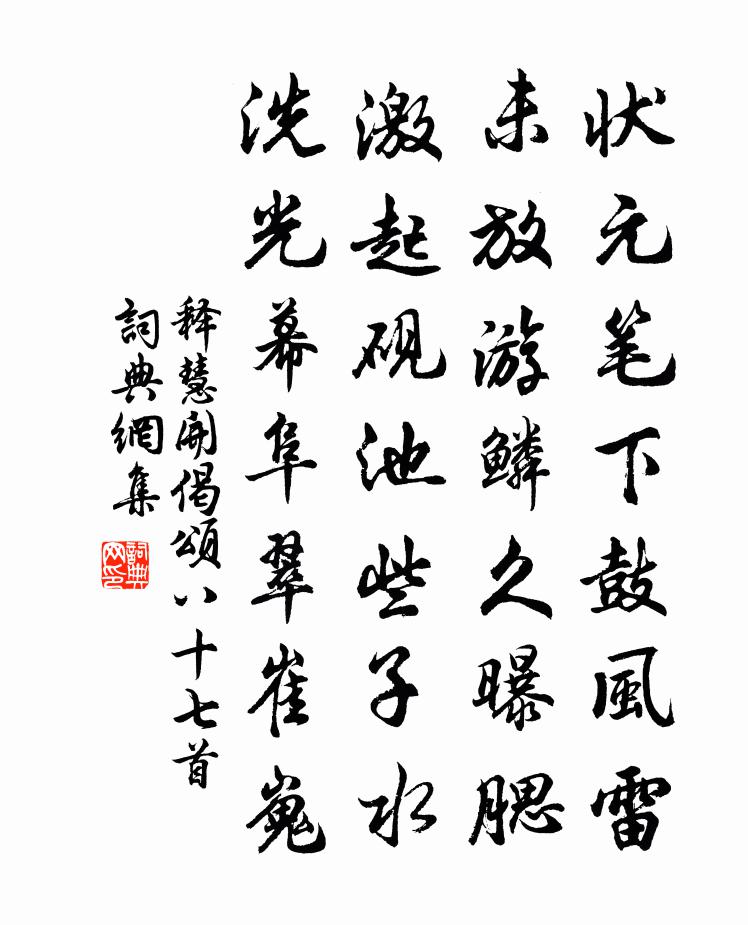 状元笔下鼓風雷
未放游鳞久曝腮
激起砚池些子水
洗光幕阜翠崔嵬
释慧開偈頌八十七首
詞典網集
詞典网印